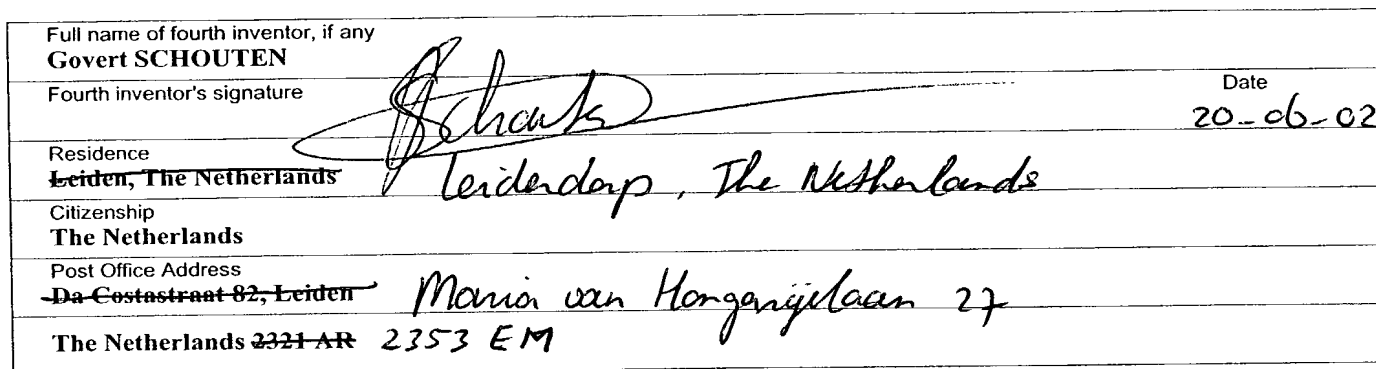 Full name of fourth inventor, if any
Govert SCHOUTEN
Fourth inventor's signature Schouten Date
20-06-02
Residence
Leiden, The Netherlands Leiderdorp, The Netherlands
Citizenship
The Netherlands
Post Office Address
Da Costastraat 82, Leiden Maria van Hongarijelaan 27
The Netherlands 2321 AR 2353 EM